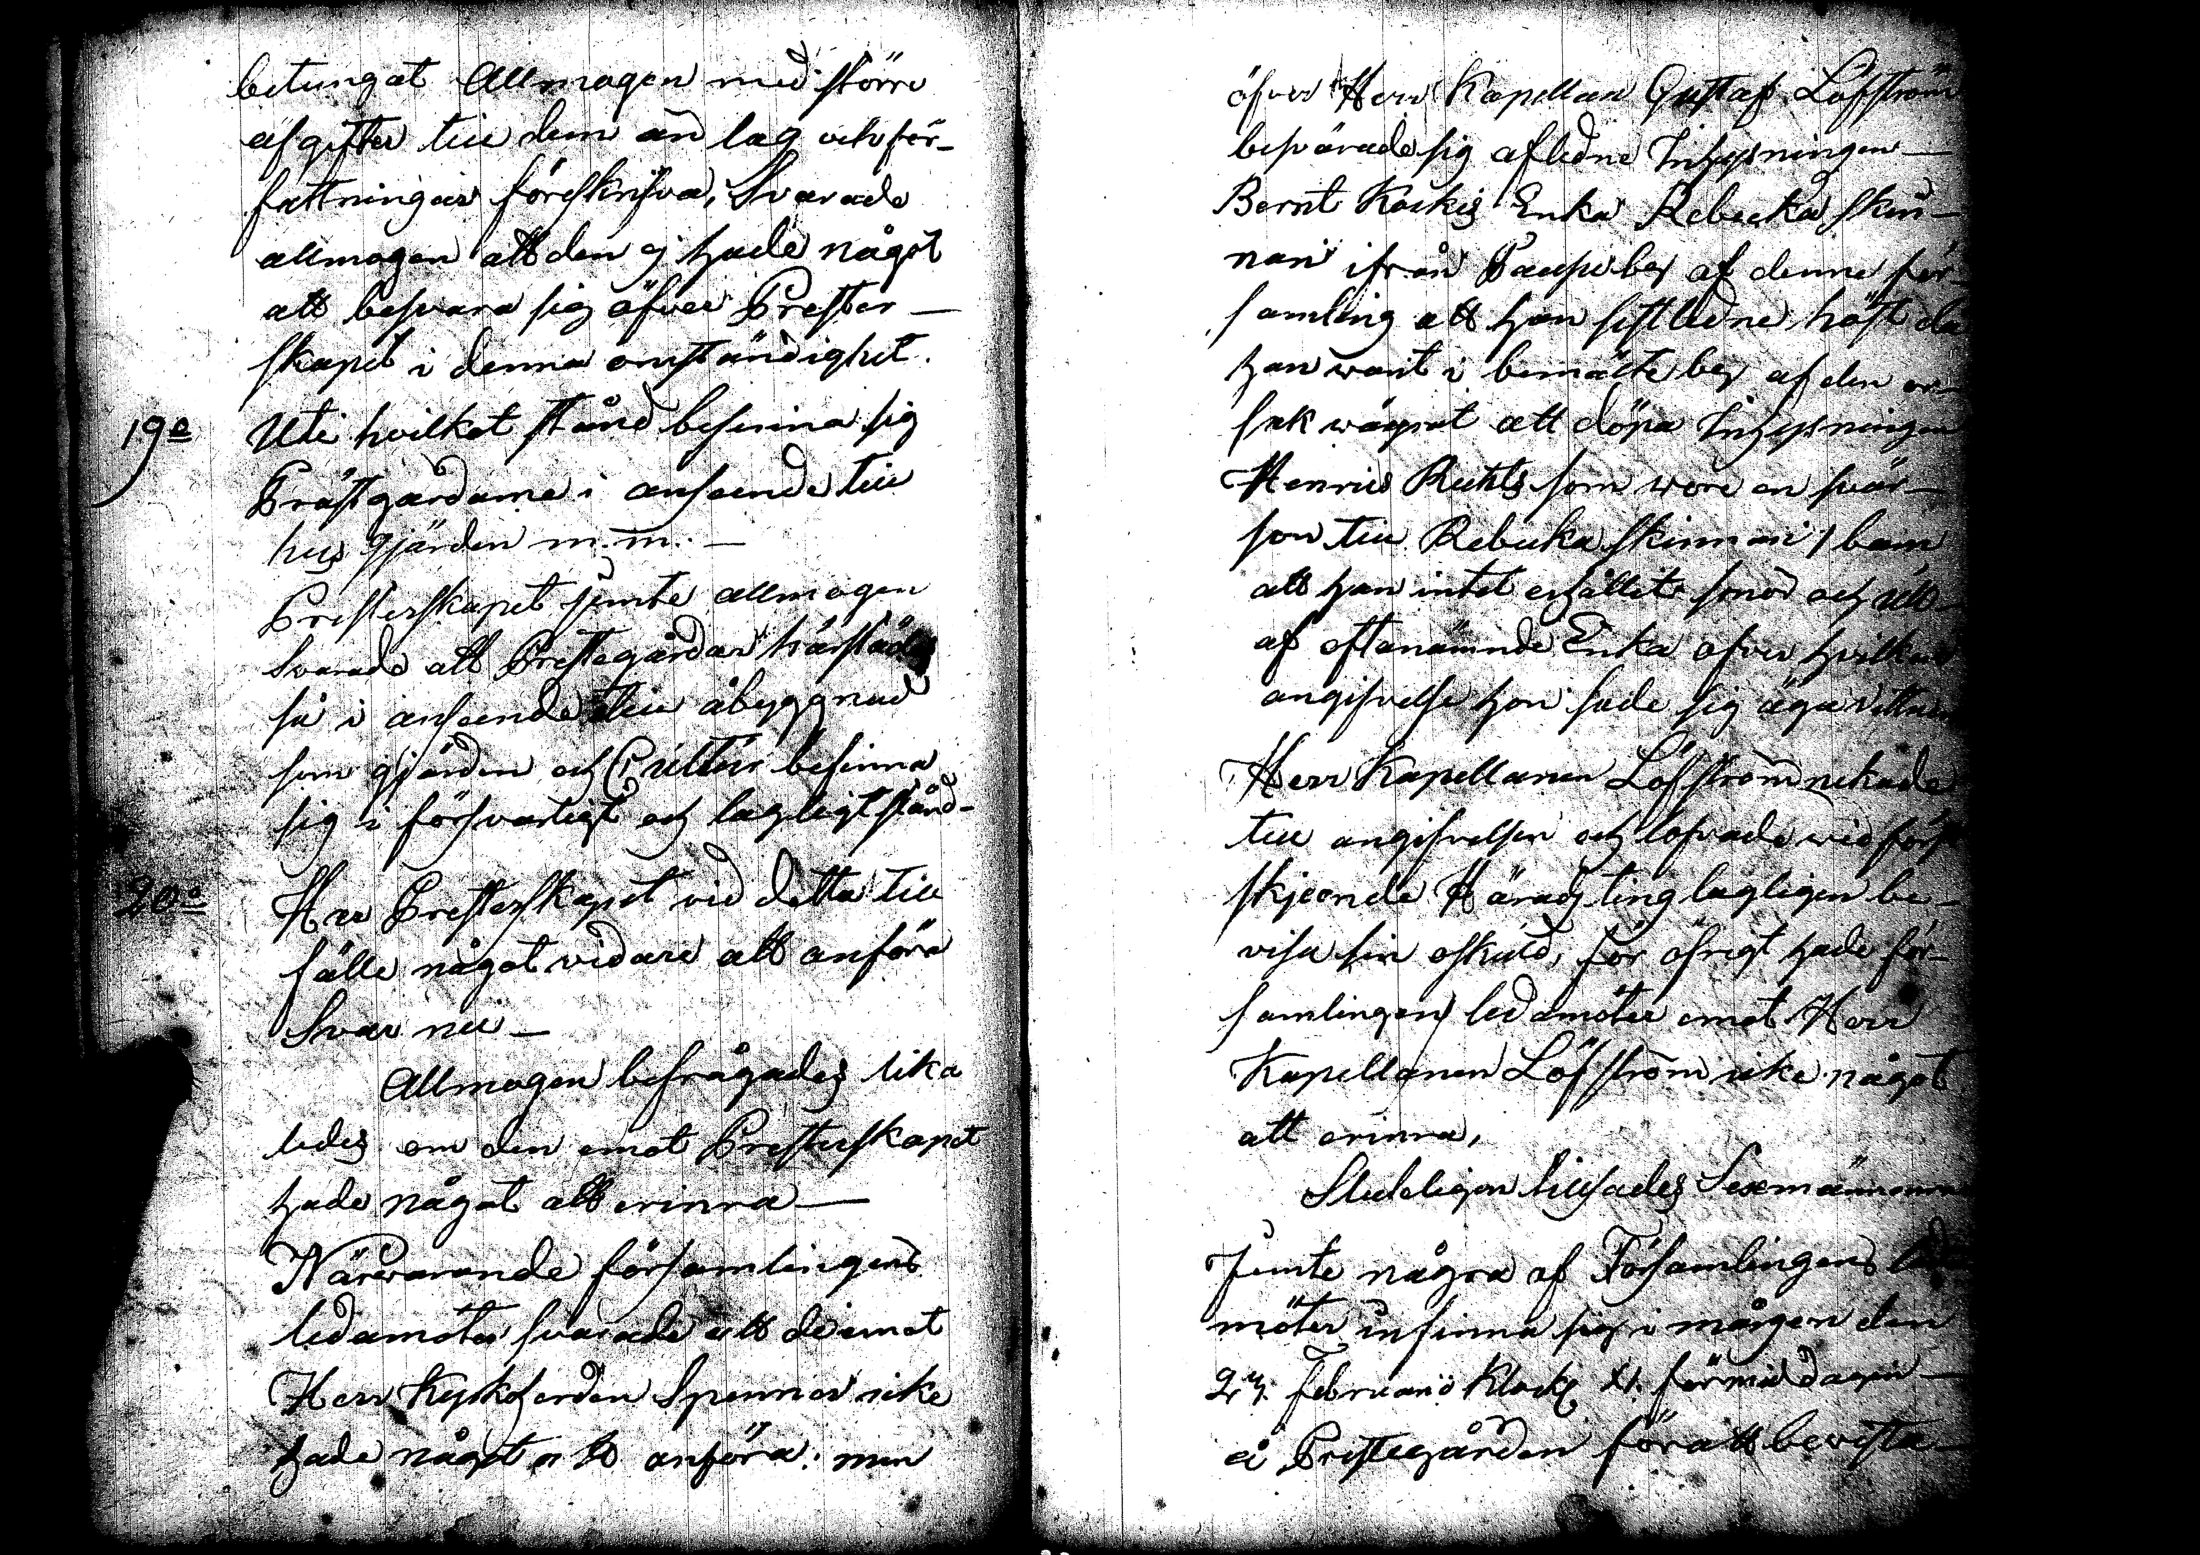 betungat Allmogen med större
afgifter till dem än lag och för-
fattningar föreskrifva, Svarade
allmogen att den ej hade något
att besvara sig öfver Prester-
skapet i denna omständighet.
19o Uti hvilket stånd befinna sig
Prästgårdarne i anseende till
hus gjärden m.m. —
Presterskapet jemte allmogen
Svarade att Prestegårdar härstädes
så i anseende till åbyggnad
som gjärden och Cultur befinna
sig i försvarligt och lagligt stånd-
20o Har Presterskapet vid detta till
fälle något vidare att anföra
Svar nei —
Allmogen befrågades lika
ledes om den emot Presterskapet
hade något att erinra —
Närwarande församlingens
ledamöter svarade att de emot
Herr Kyrkoherden Spenner icke
hade något att anföra: men
öfver Herr Kapellan Gustaf Löfström
besvärade sig afledne Inhysningen —
Bernt Kockis Enka Rebecka Skin-
nari ifrån by af denne för-
samling att han sistledne höst då
han warit i bemälte by af den or-
sak wägrat att döpa Inhysningen
Henric som wore en svär-
son till Rebecka Skinnari barn
att han intet erhållit och ull
af oftanämnde Enka öfver hvilken
angifvelse hon sade sig äga vittnen
Herr Kapellanen Löfström nekade
till angifvelsen och lofvade wid först
skjeende Härads ting lagligen be-
visa sin oskuld, för öfrigt hade för-
samlingens ledamöter emot Herr
Kapellanen Löfström icke något
att erinra,
Sluteligen Sexmännerna
Jemte några af Församlingens leda-
möter infinna sig i mårgon den
Februarii Klock. förmiddagen —
å Prestegården för att bewista